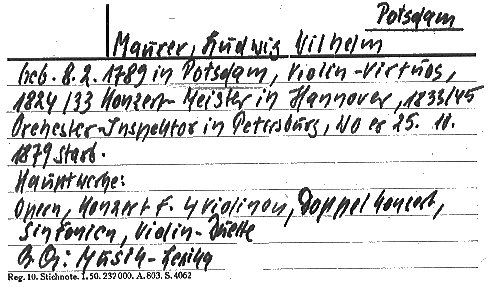 Potsdam
Maurer, Ludwig Wilhelm
Geb. 8.2.1789 in Potsdam, Violin-Virtuos,
1824/33 Konzert-Meister in Hannover, 1833/45
Orchester-Inspektor in Petersburg, wo er 25. 10.
1879 starb.
Hauptwerke:
Opern, Konzert f. 4 Violinen, Doppelkonzert,
Sinfonien, Violin-Duette
Musik-Lexika
Reg. 10. Stichnote. I. 50. 232000. A. 803. S. 4062